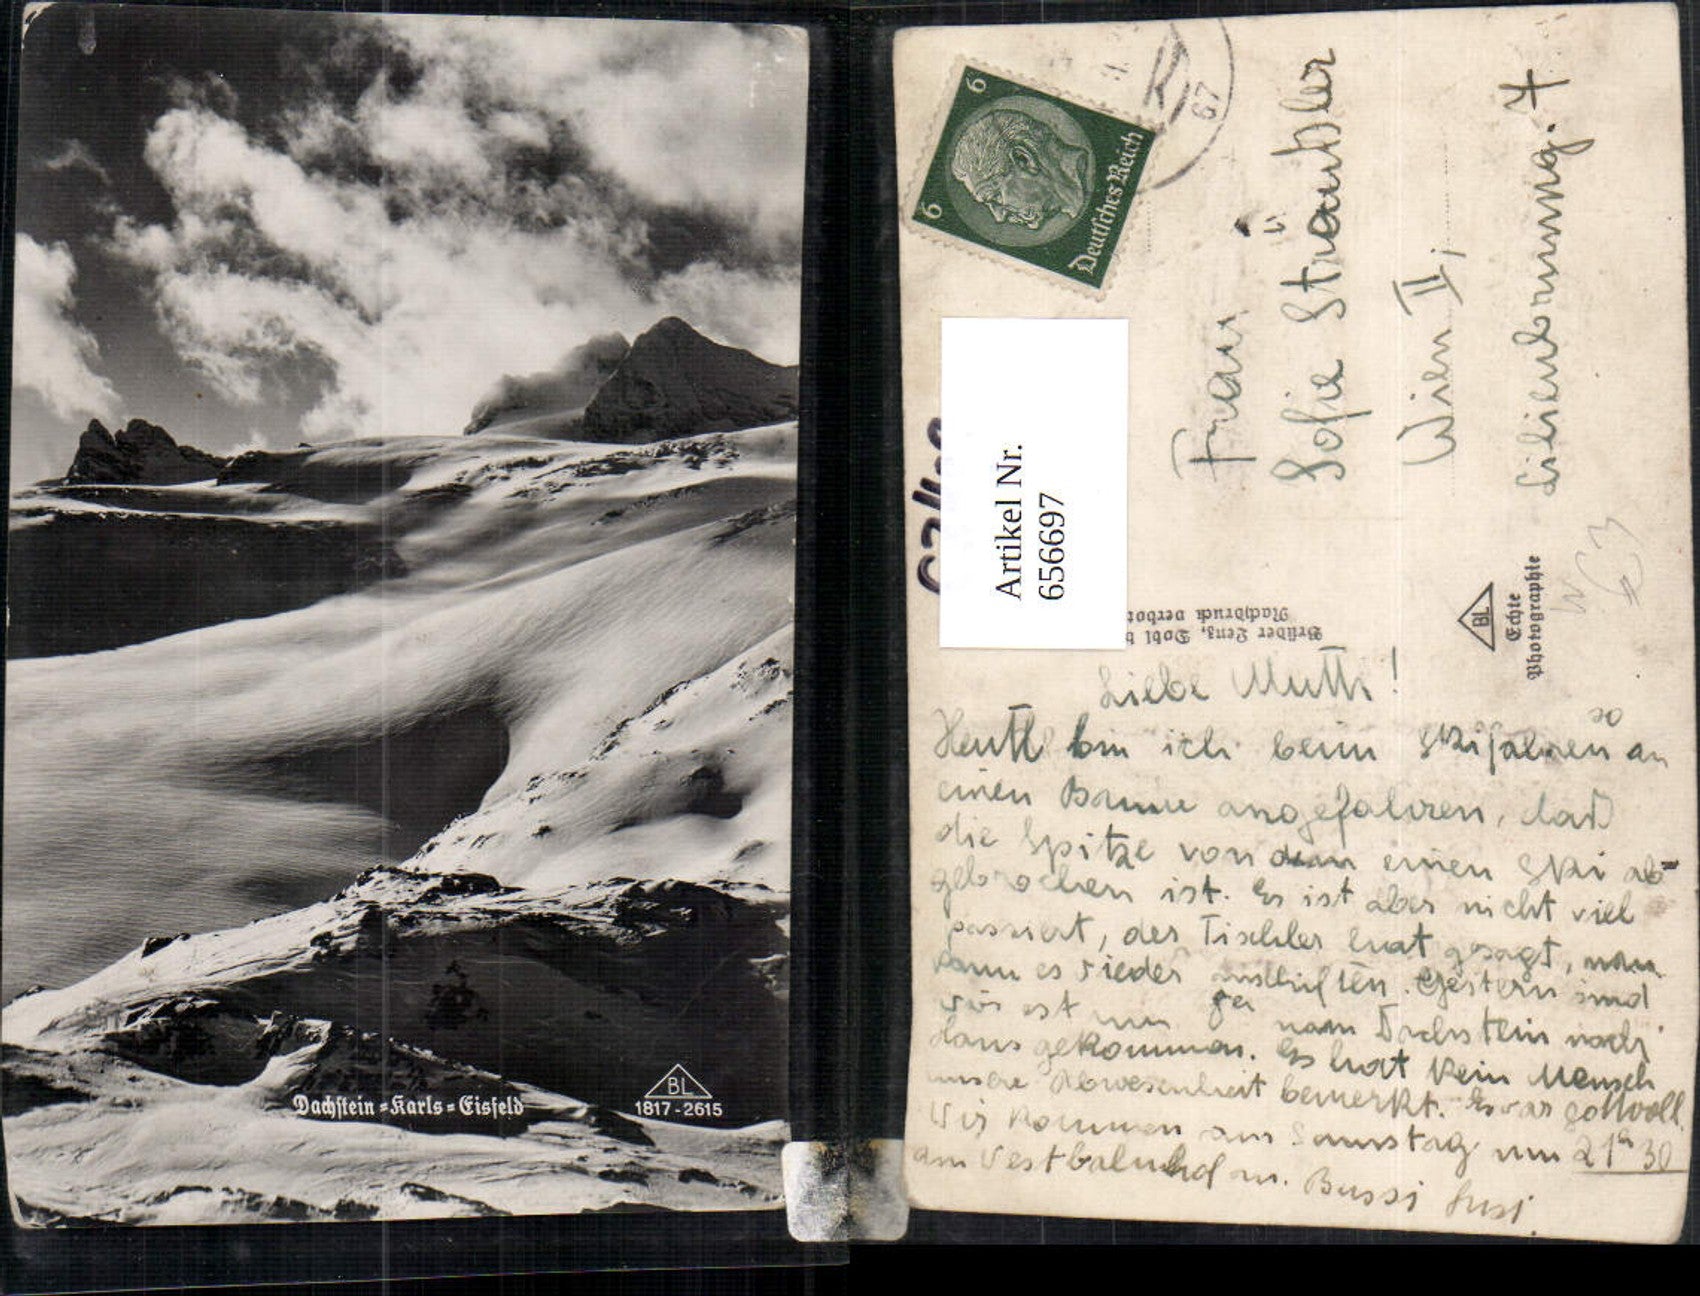 Dachstein-Karls-Eisfeld
BL
1817-2615
6
6
Deutsches Reich
67
Artikel Nr.
656697
Frau
Sofie Sträußler
Wien II,
Lilienbrunng. 7
Brüder Lenz, Dobl
Nachdruck verbot
BL
Echte
Photographie
Liebe Mutti!
Heute bin ich beim Skifahren so an
einen Baum angefahren, daß
die Spitze von dem einen Ski ab=
gebrochen ist. Es ist aber nicht viel
passiert, der Tischler hat gesagt, man
kann es wieder anschiften. Gestern sind
wir erst um vom Dachstein nach
haus gekommen. Es hat kein Mensch
unsere Abwesenheit bemerkt. Es war gottvoll.
Wir kommen am Samstag um 21h 30
am Westbahnhof an. Bussi Susi.